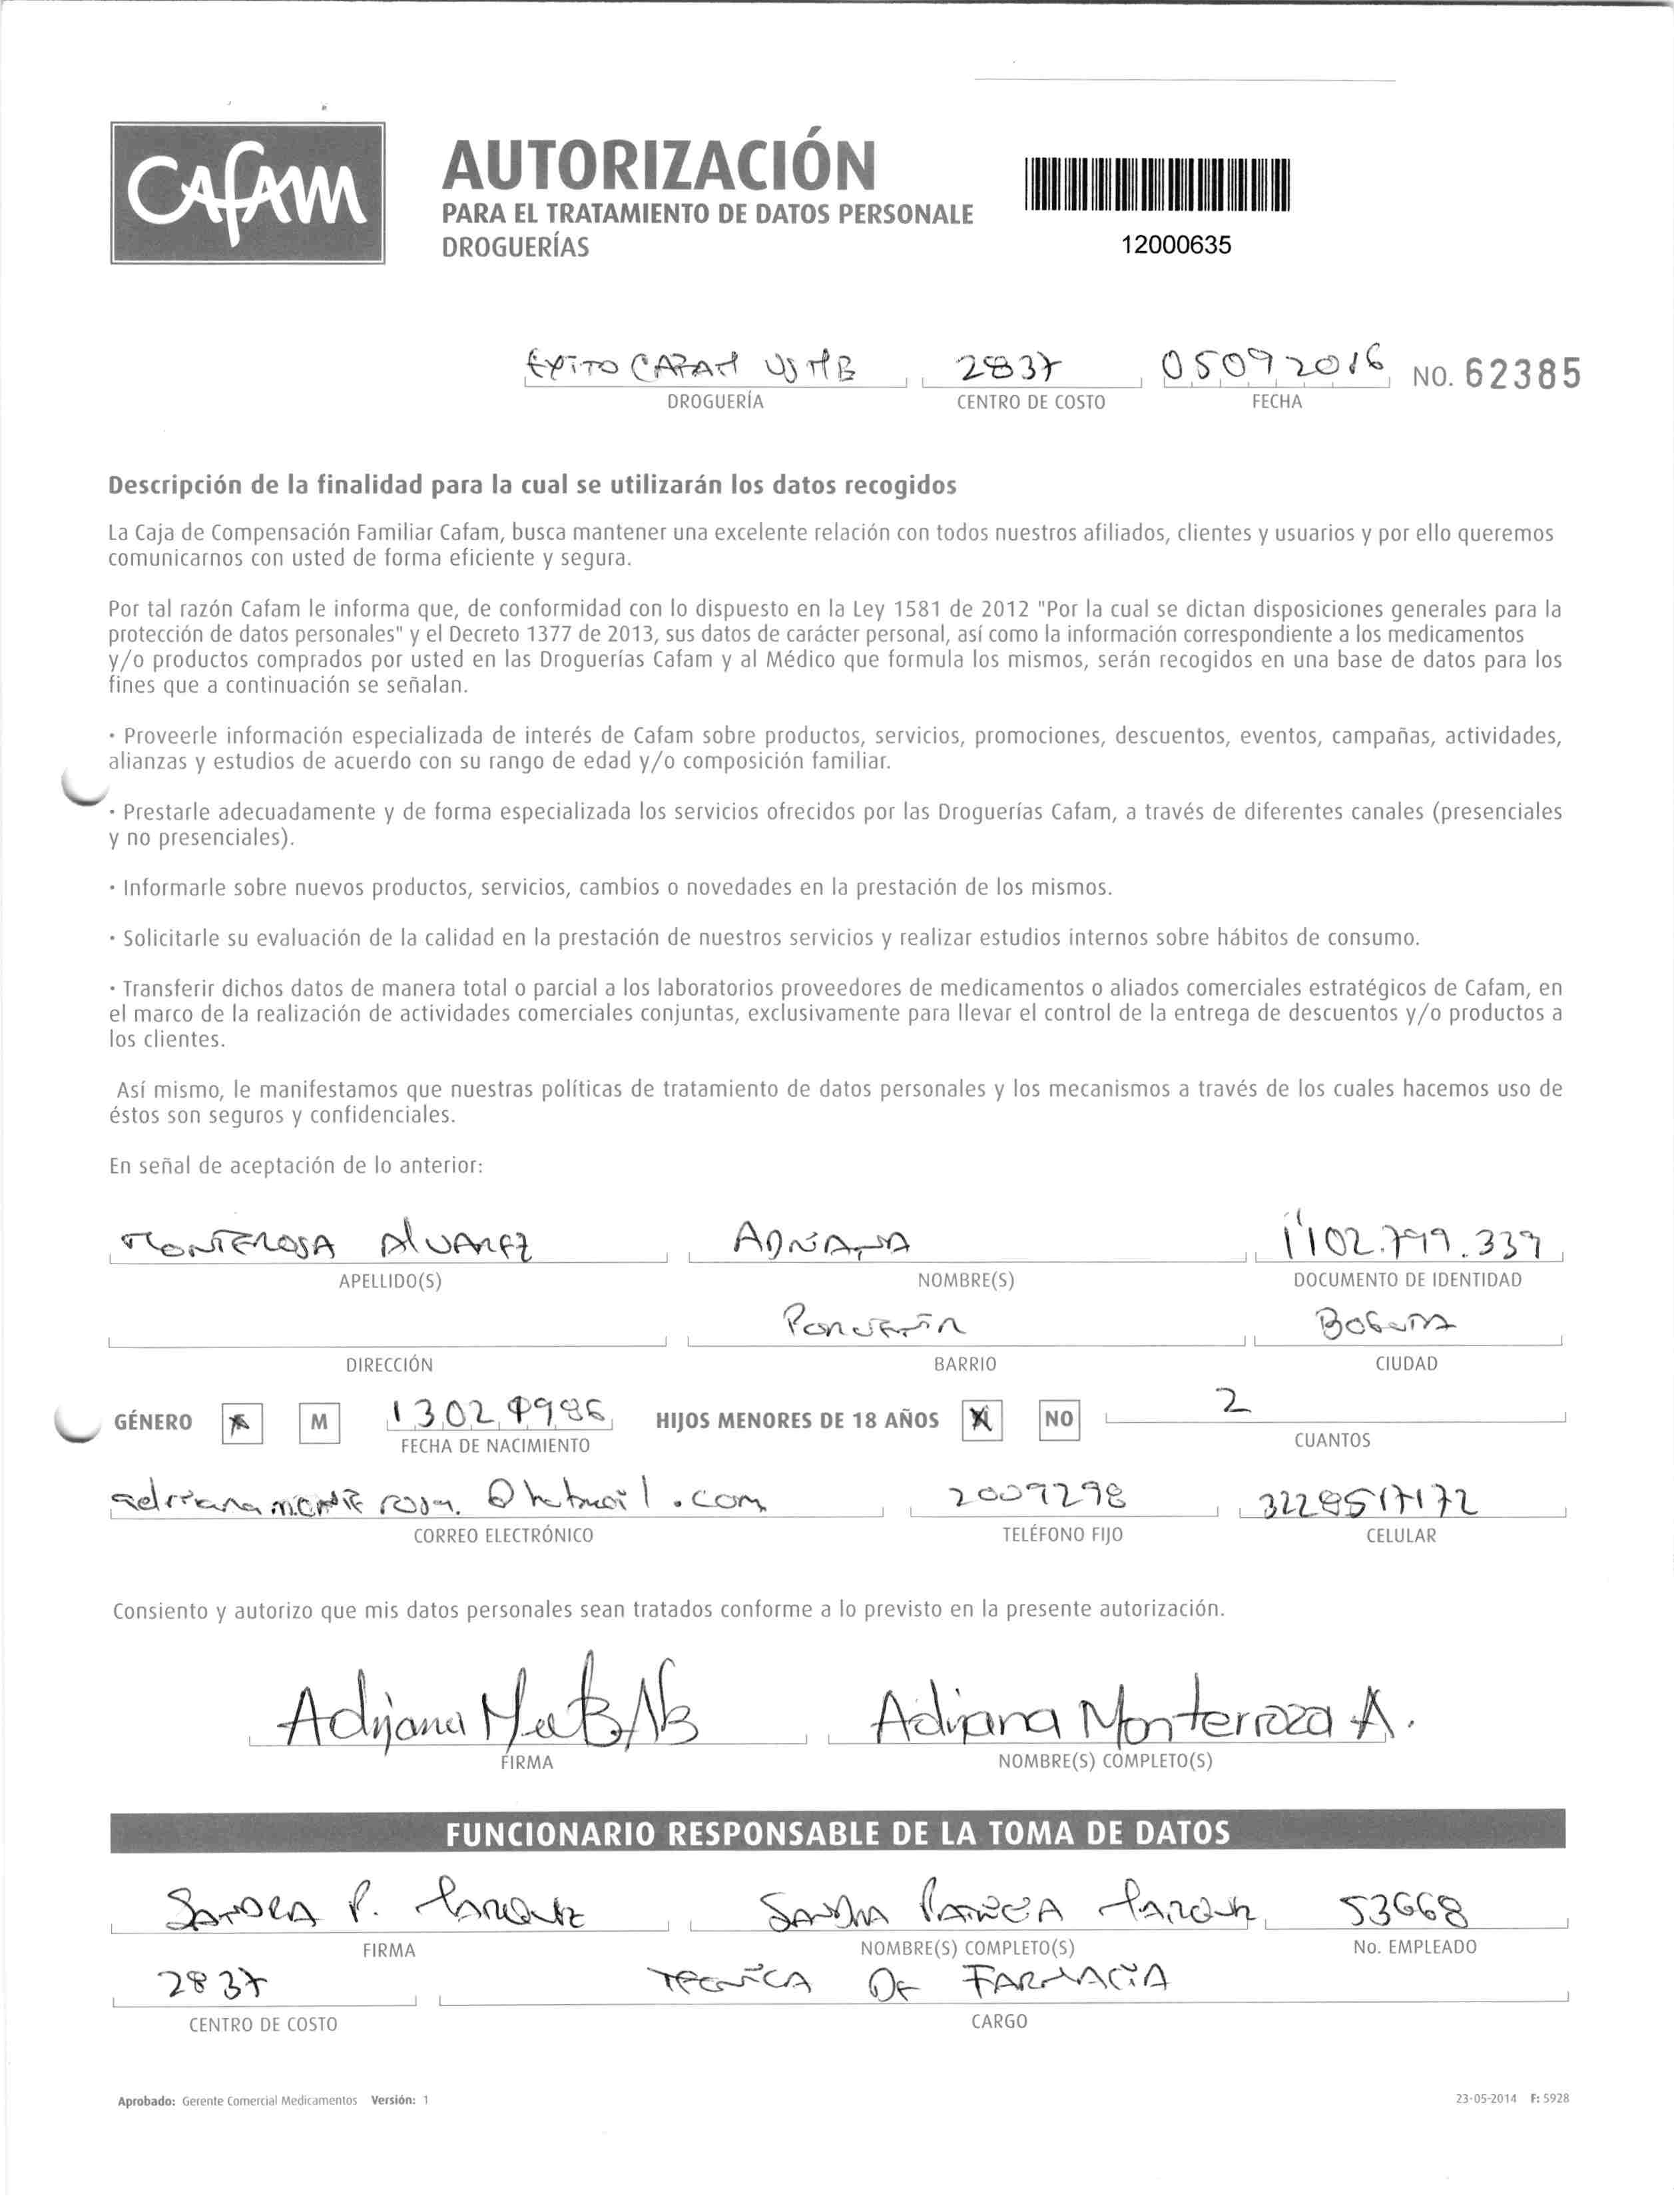 CAFAM
AUTORIZACIÓN
PARA EL TRATAMIENTO DE DATOS PERSONALE
DROGUERÍAS
12000635
EXITO CAFAM 2837 05092016 NO. 62385
DROGUERÍA CENTRO DE COSTO FECHA
Descripción de la finalidad para la cual se utilizarán los datos recogidos
La Caja de Compensación Familiar Cafam, busca mantener una excelente relación con todos nuestros afiliados, clientes y usuarios y por ello queremos
comunicarnos con usted de forma eficiente y segura.
Por tal razón Cafam le informa que, de conformidad con lo dispuesto en la Ley 1581 de 2012 "Por la cual se dictan disposiciones generales para la
protección de datos personales" y el Decreto 1377 de 2013, sus datos de carácter personal, así como la información correspondiente a los medicamentos
y/o productos comprados por usted en las Droguerías Cafam y al Médico que formula los mismos, serán recogidos en una base de datos para los
fines que a continuación se señalan.
· Proveerle información especializada de interés de Cafam sobre productos, servicios, promociones, descuentos, eventos, campañas, actividades,
alianzas y estudios de acuerdo con su rango de edad y/o composición familiar.
· Prestarle adecuadamente y de forma especializada los servicios ofrecidos por las Droguerías Cafam, a través de diferentes canales (presenciales
y no presenciales).
· Informarle sobre nuevos productos, servicios, cambios o novedades en la prestación de los mismos.
· Solicitarle su evaluación de la calidad en la prestación de nuestros servicios y realizar estudios internos sobre hábitos de consumo.
· Transferir dichos datos de manera total o parcial a los laboratorios proveedores de medicamentos o aliados comerciales estratégicos de Cafam, en
el marco de la realización de actividades comerciales conjuntas, exclusivamente para llevar el control de la entrega de descuentos y/o productos a
los clientes.
Así mismo, le manifestamos que nuestras políticas de tratamiento de datos personales y los mecanismos a través de los cuales hacemos uso de
éstos son seguros y confidenciales.
En señal de aceptación de lo anterior:
MONTEROSA ALVAREZ ADRIANA 1102.799.339
APELLIDO(S) NOMBRE(S) DOCUMENTO DE IDENTIDAD
BOGOTA
DIRECCIÓN BARRIO CIUDAD
GÉNERO M 13021986 HIJOS MENORES DE 18 AÑOS X NO 2
FECHA DE NACIMIENTO CUANTOS
2009298 3228517172
CORREO ELECTRÓNICO TELÉFONO FIJO CELULAR
Consiento y autorizo que mis datos personales sean tratados conforme a lo previsto en la presente autorización.
Adriana Adriana Monterroza A.
FIRMA NOMBRE(S) COMPLETO(S)
FUNCIONARIO RESPONSABLE DE LA TOMA DE DATOS
SANDRA P. SANDRA PATRICIA 53668
FIRMA NOMBRE(S) COMPLETO(S) No. EMPLEADO
2837 TECNICA DE FARMACIA
CENTRO DE COSTO CARGO
Aprobado: Gerente Comercial Medicamentos Versión: 1 23-05-2014 F: 5928